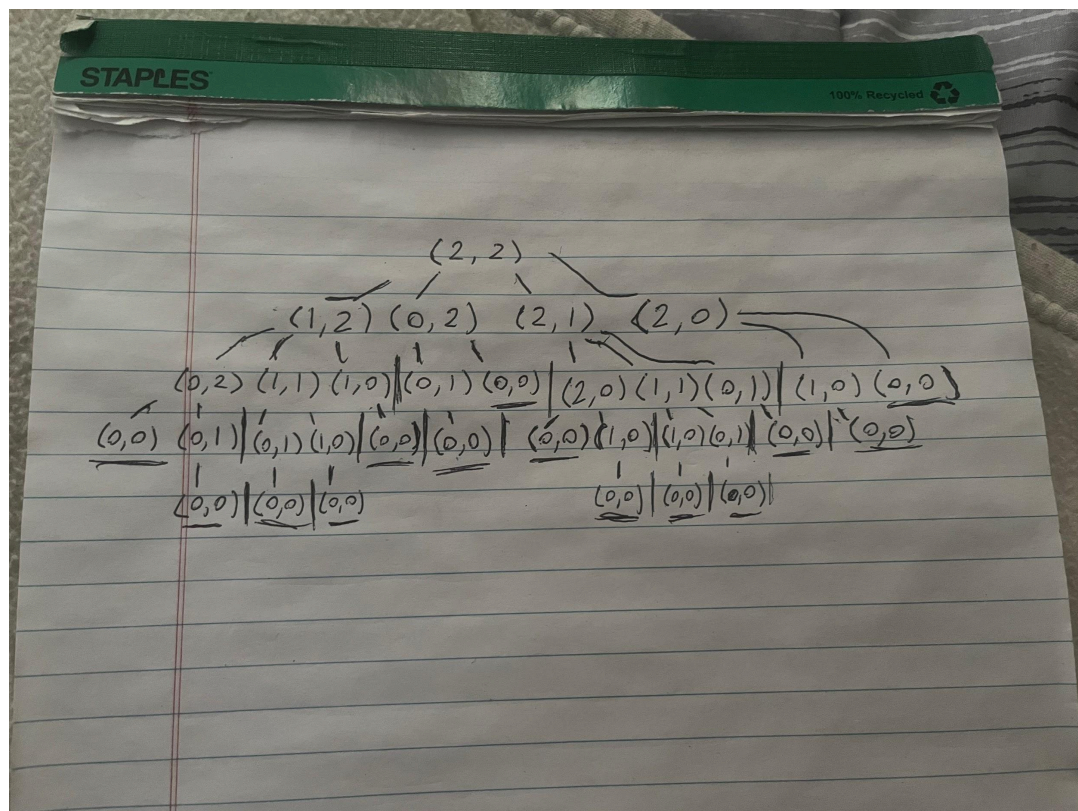 STAPLES
100% Recycled
(2,2)
(1,2) (0,2) (2,1) (2,0)
(0,2) (1,1) (1,0) | (0,1) (0,0) | (2,0) (1,1) (0,1) | (1,0) (0,0)
(0,0) (0,1) | (0,1) (1,0) | (0,0) | (0,0) | (0,0) (1,0) | (1,0) (0,1) | (0,0) | (0,0)
(0,0) | (0,0) | (0,0) (0,0) | (0,0) | (0,0) |